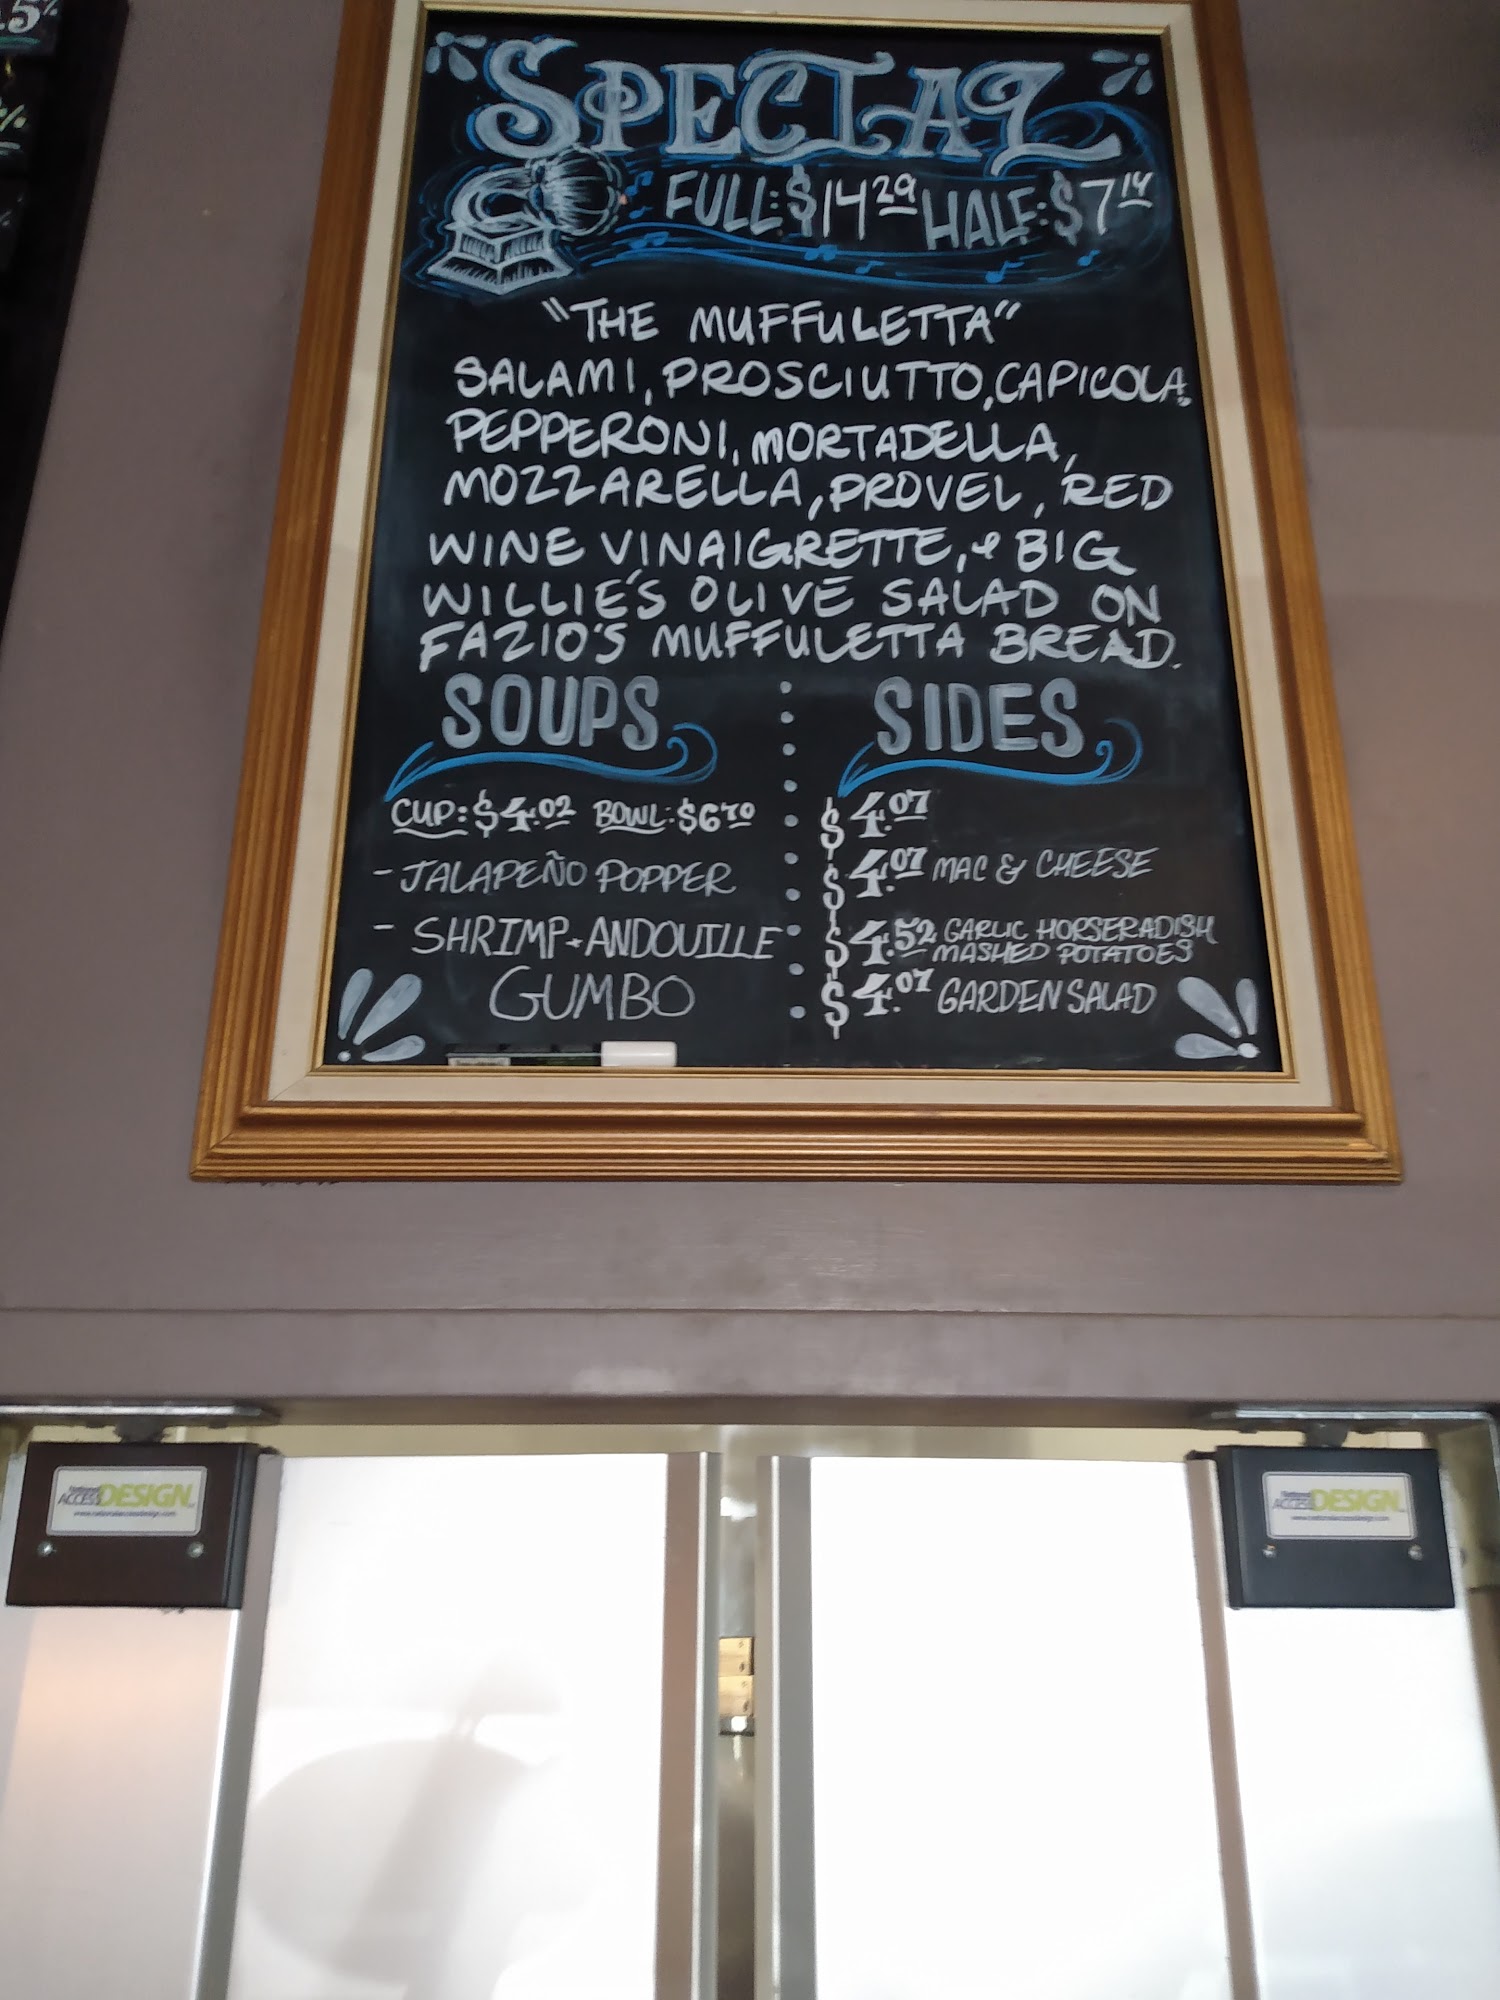 .5%
%
SPECIAL
FULL: $14.29 HALF: $7.14
"THE MUFFULETTA"
SALAMI, PROSCIUTTO, CAPICOLA,
PEPPERONI, MORTADELLA,
MOZZARELLA, PROVEL, RED
WINE VINAIGRETTE, & BIG
WILLIE'S OLIVE SALAD ON
FAZIO'S MUFFULETTA BREAD.
SOUPS
CUP: $4.02 BOWL: $6.70
- JALAPEÑO POPPER
- SHRIMP + ANDOUILLE
GUMBO
SIDES
$4.07
$4.07 MAC & CHEESE
$4.52 GARLIC HORSERADISH
MASHED POTATOES
$4.07 GARDEN SALAD
National
ACCESSDESIGN
www.nationalaccessdesign.com
National
ACCESSDESIGN
www.nationalaccessdesign.com